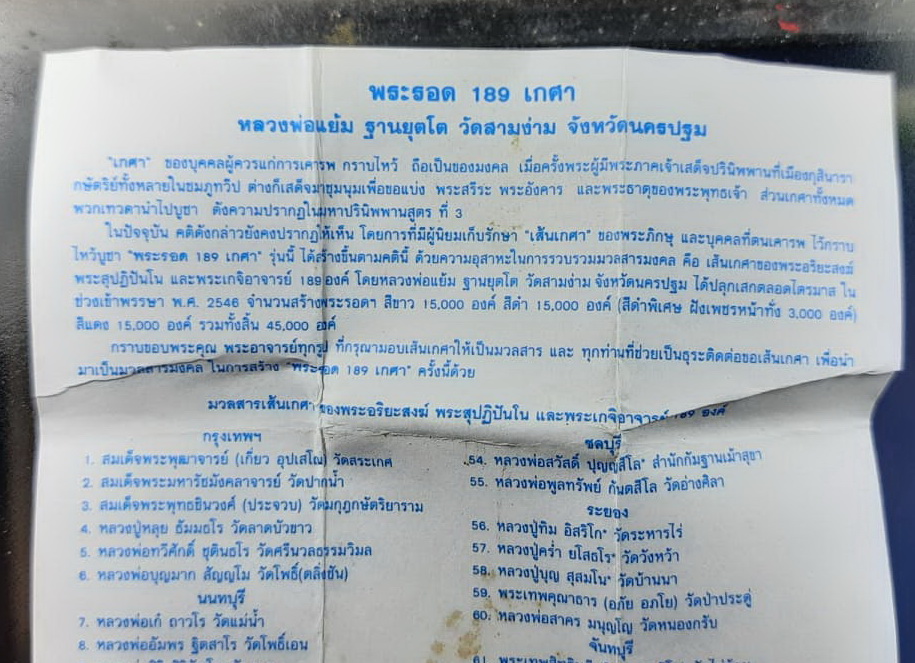 พระรอด 189 เกศา
หลวงพ่อแย้ม ฐานยุตโต วัดสามง่าม จังหวัดนครปฐม
"เกศา" ของบุคคลผู้ควรแก่การเคารพ กราบไหว้ ถือเป็นของมงคล เมื่อครั้งพระผู้มีพระภาคเจ้าเสด็จปรินิพพานที่เมืองกุสินารา
กษัตริย์ทั้งหลายในชมภูทวีป ต่างก็เสด็จมาชุมนุมเพื่อขอแบ่ง พระสรีระ พระอังคาร และพระธาตุของพระพุทธเจ้า ส่วนเกศาทั้งหมด
พวกเทวดานำไปบูชา ดังความปรากฏในมหาปรินิพพานสูตร ที่ 3
ในปัจจุบัน คติดังกล่าวยังคงปรากฏให้เห็น โดยการที่มีผู้นิยมเก็บรักษา "เส้นเกศา" ของพระภิกษุ และบุคคลที่ตนเคารพ ไว้กราบ
ไหว้บูชา "พระรอด 189 เกศา" รุ่นนี้ ได้สร้างขึ้นตามคตินี้ ด้วยความอุสาหะในการรวบรวมมวลสารมงคล คือ เส้นเกศาของพระอริยะสงฆ์
พระสุปฏิปันโน และพระเกจิอาจารย์ 189 องค์ โดยหลวงพ่อแย้ม ฐานยุตโต วัดสามง่าม จังหวัดนครปฐม ได้ปลุกเสกตลอดไตรมาส ใน
ช่วงเข้าพรรษา พ.ศ. 2546 จำนวนสร้างพระรอดฯ สีขาว 15,000 องค์ สีดำ 15,000 องค์ (สีดำพิเศษ ฝังเพชรหน้าทั่ง 3,000 องค์)
สีแดง 15,000 องค์ รวมทั้งสิ้น 45,000 องค์
กราบขอบพระคุณ พระอาจารย์ทุกรูป ที่กรุณามอบเส้นเกศาให้เป็นมวลสาร และ ทุกท่านที่ช่วยเป็นธุระติดต่อขอเส้นเกศา เพื่อนำ
มาเป็นมวลสารมงคล ในการสร้าง "พระรอด 189 เกศา" ครั้งนี้ด้วย
มวลสารเส้นเกศาของพระอริยะสงฆ์ พระสุปฏิปันโน และพระเกจิอาจารย์ 189 องค์
กรุงเทพฯ
1. สมเด็จพระพุฒาจารย์ (เกี่ยว อุปเสโณ) วัดสระเกศ
2. สมเด็จพระมหารัชมังคลาจารย์ วัดปากน้ำ
3. สมเด็จพระพุทธชินวงศ์ (ประจวบ) วัดมกุฎกษัตริยาราม
4. หลวงปู่หลุย ธัมมธโร วัดลาดบัวขาว
5. หลวงพ่อทวีศักดิ์ ชุตินธโร วัดศรีนวลธรรมวิมล
6. หลวงพ่อบุญมาก สัญญโม วัดโพธิ์(ตลิ่งชัน)
นนทบุรี
7. หลวงพ่อเก๋ ถาวโร วัดแม่น้ำ
8. หลวงพ่ออัมพร ฐิตสาโร วัดโพธิ์เอน
ชลบุรี
54. หลวงพ่อสวัสดิ์ ปุญญสีโล* สำนักกัมฐานเม้าสุขา
55. หลวงพ่อพูลทรัพย์ กันตสีโล วัดอ่างศิลา
ระยอง
56. หลวงปู่ทิม อิสริโก* วัดระหารไร่
57. หลวงปู่คร่ำ ยโสธโร* วัดวังหว้า
58. หลวงปู่บุญ สุสมโน* วัดบ้านนา
59. พระเทพคุณาธาร (อภัย อภโย) วัดป่าประดู่
60. หลวงพ่อสาคร มนุญโญ วัดหนองกรับ
จันทบุรี
61.